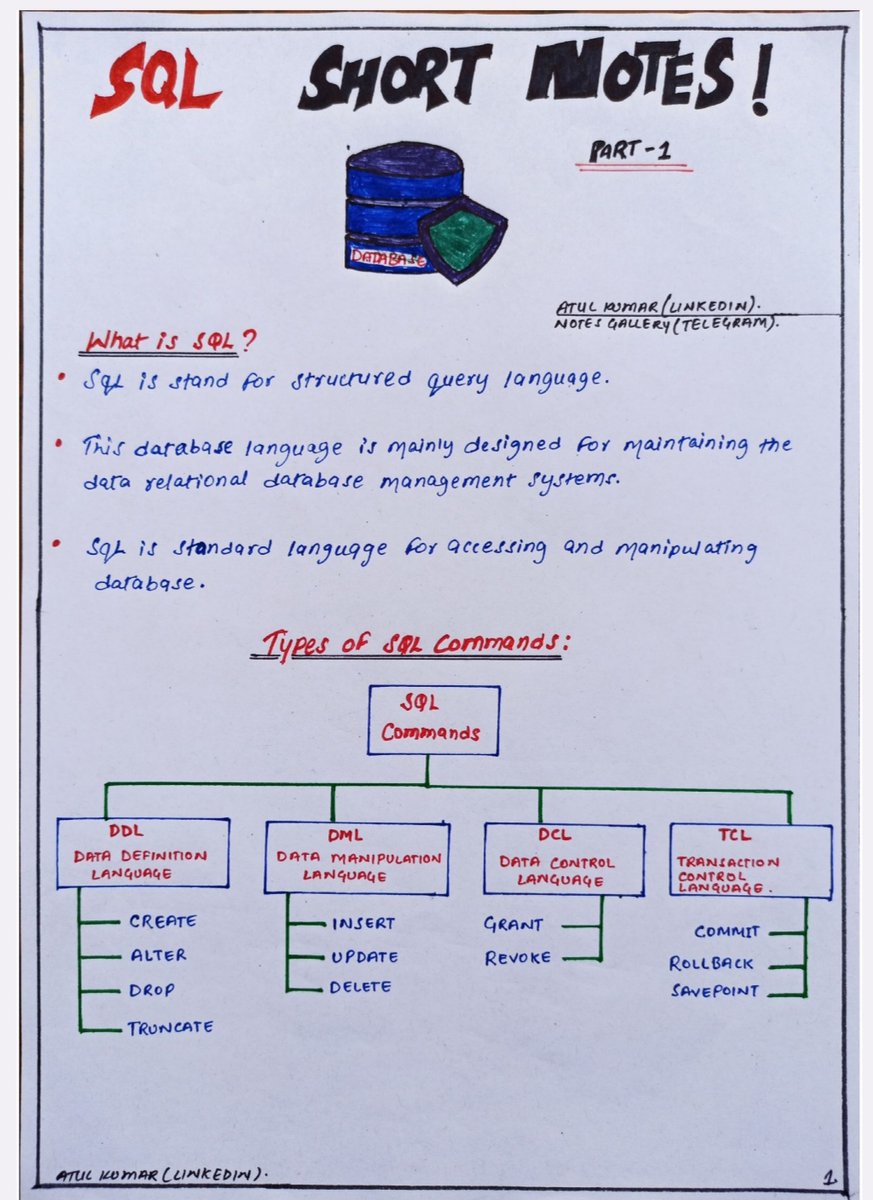 SQL SHORT NOTES!
PART-1
DATABASE
ATUL KUMAR(LINKEDIN).
NOTES GALLERY(TELEGRAM).
What is SQL?
• SqL is stand for structured query language.
• This database language is mainly designed for maintaining the
data relational database management systems.
• SqL is standard language for accessing and manipulating
database.
Types of SQL Commands:
SQL
Commands
DDL
DATA DEFINITION
LANGUAGE
CREATE
ALTER
DROP
TRUNCATE
DML
DATA MANIPULATION
LANGUAGE
INSERT
UPDATE
DELETE
DCL
DATA CONTROL
LANGUAGE
GRANT
REVOKE
TCL
TRANSACTION
CONTROL
LANGUAGE.
COMMIT
ROLLBACK
SAVEPOINT
ATUL KUMAR(LINKEDIN).
1